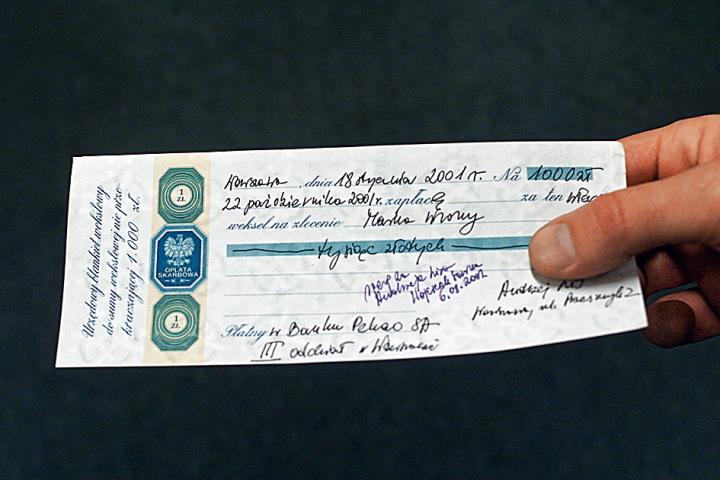 Urzędowy blankiet wekslowy
do sumy wekslowej nie prze-
kraczającej 1.000 zł.
1
ZŁ
OPŁATA
SKARBOWA
1
ZŁ
Warszawa, dnia 18 stycznia 2001 r. Na 1000 zł
22 października 2001 r. zapłacę za ten własny
weksel na zlecenie Marka Wrony
tysiąc złotych
poręczam
Andrzeja Lisa
Wojciech
6.03.2001
Andrzej Lis
Warszawa, ul.
Płatny w Banku Pekao SA
III oddział w Warszawie